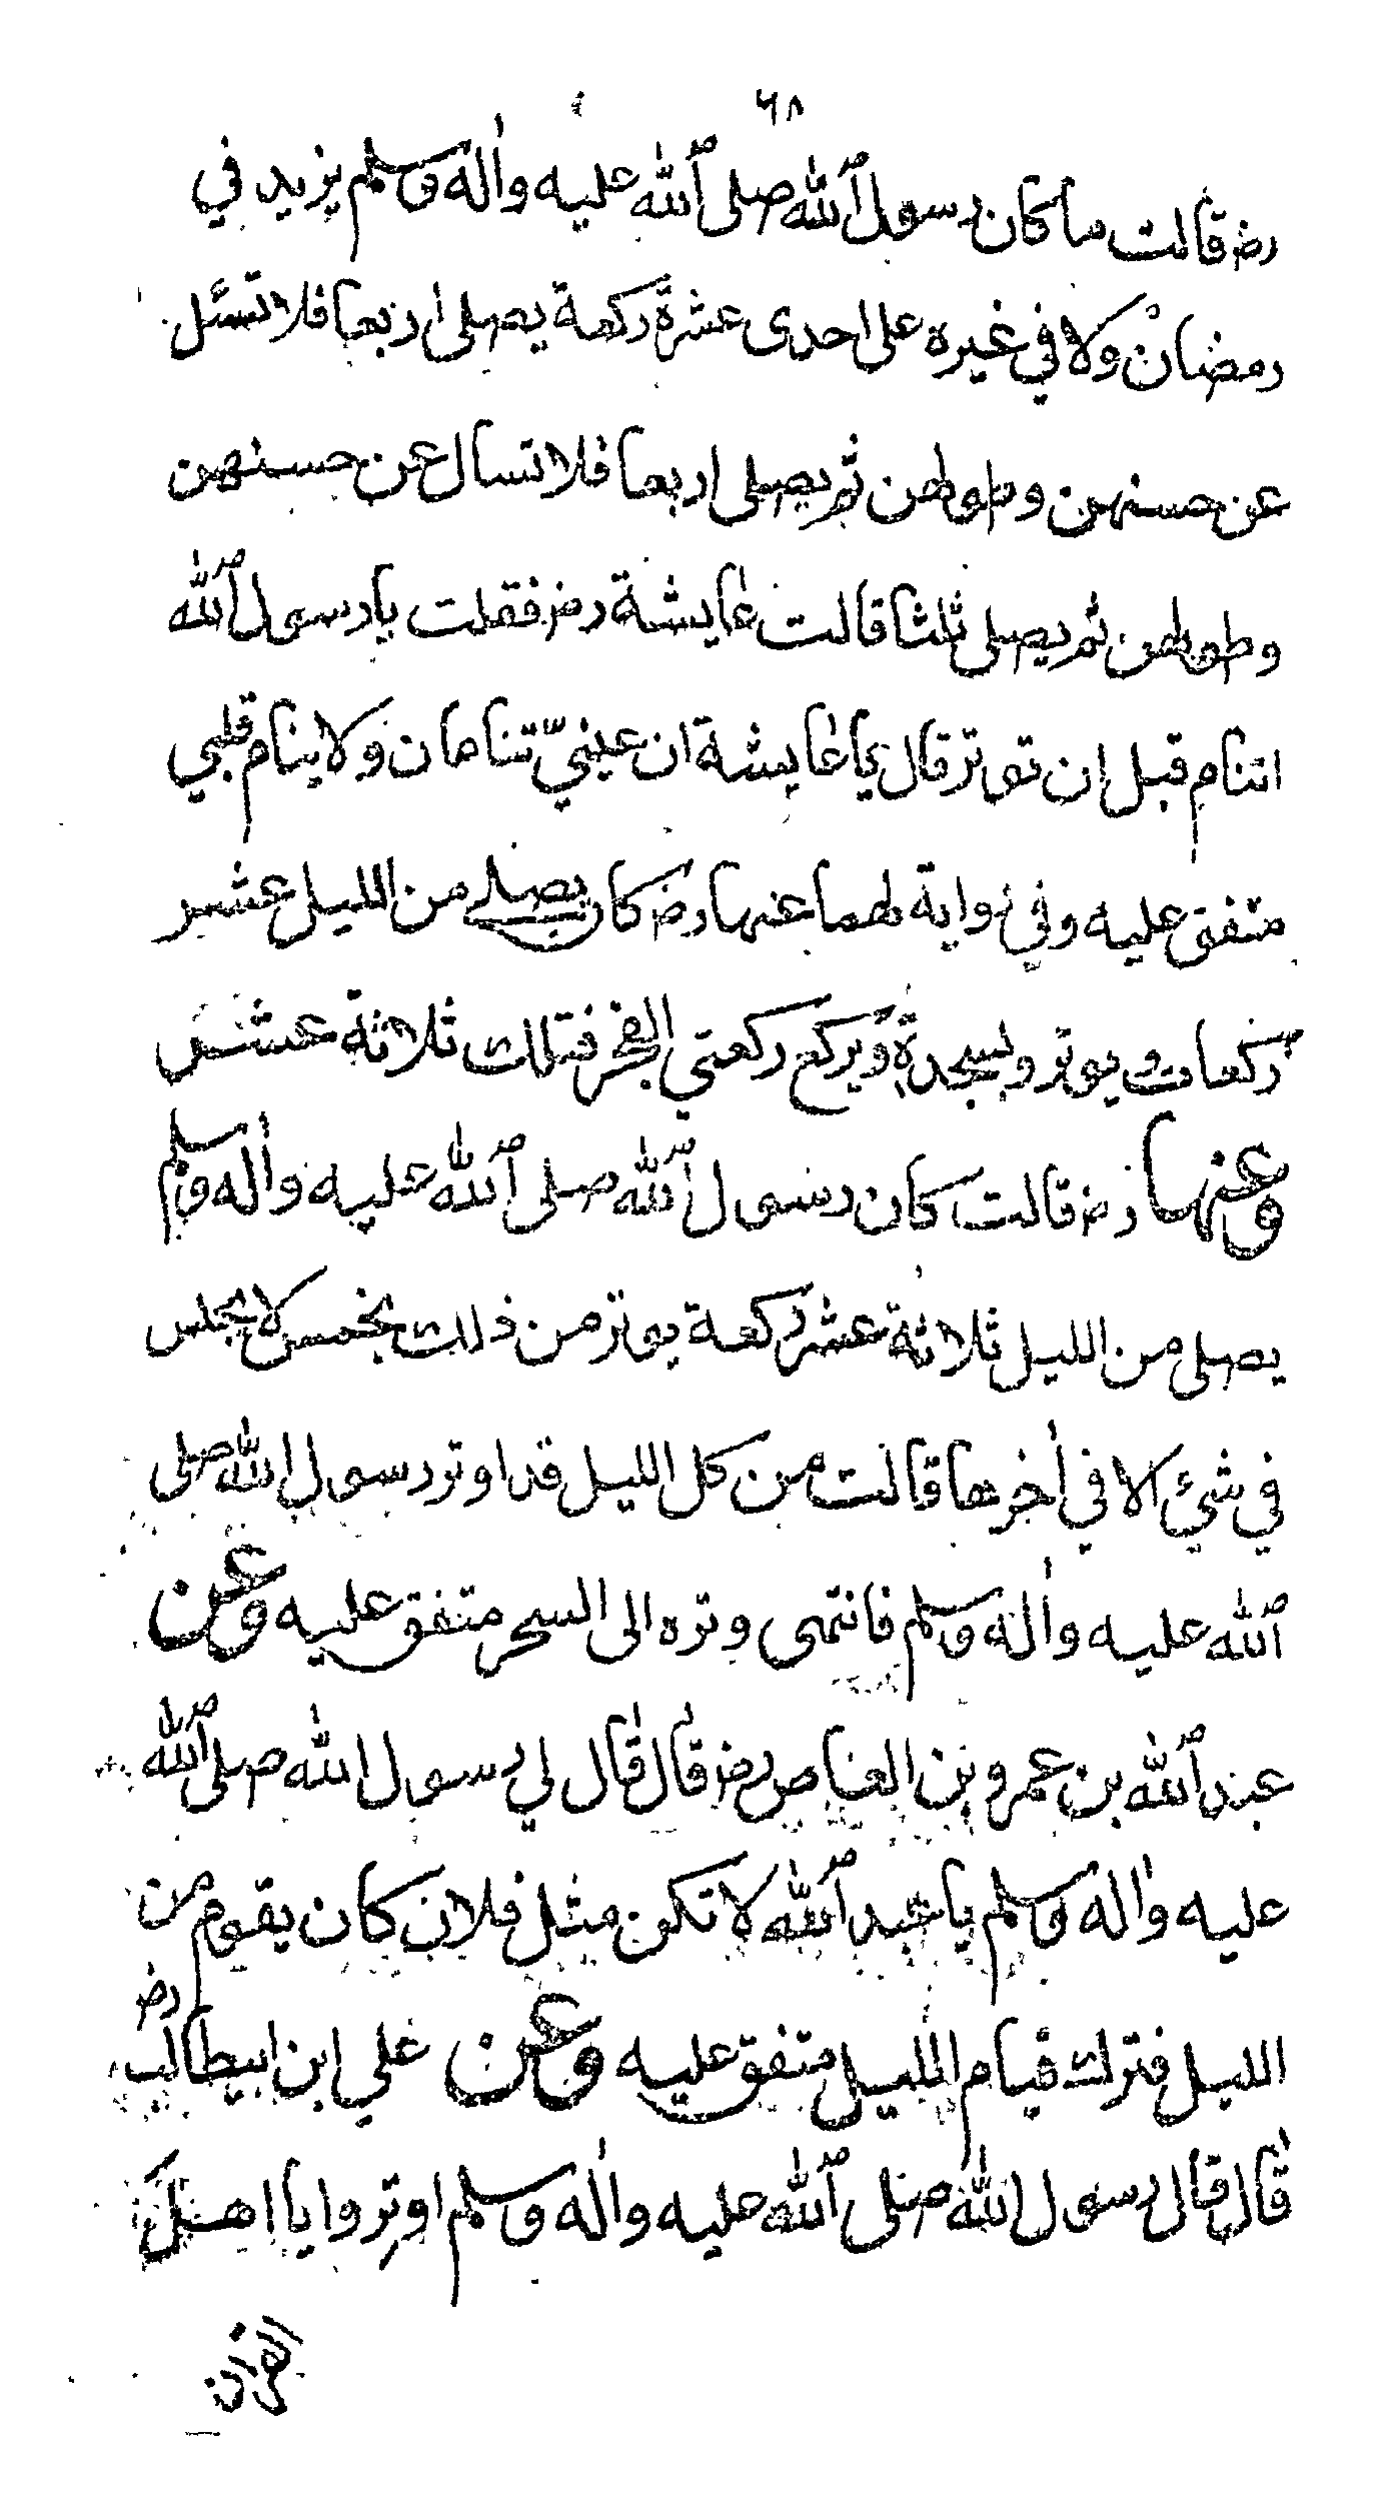 ٦٨
رض قالت ما كان رسول الله صلى الله عليه واله وسلم يزيد في
رمضان ولا في غيره على احدى عشرة ركعة يصلى اربعا فلا تسئل
عن حسنهن وطولهن ثم يصلى اربعا فلا تسال عن حسنهن
وطولهن ثم يصلى ثلثا قالت عايشة رض فقلت يا رسول الله
اتنام قبل ان توتر قال يا عايشة ان عينيّ تنامان ولا ينام قلبي
متفق عليه وفي رواية لهما عنها رض كان يصلے من الليل عشر
ركعات ويوتر بسجدة ويركع ركعتي الفجر فتلك ثلاثة عشر
وعنها رض قالت كان رسول الله صلى الله عليه واله وسلم
يصلى من الليل ثلاثة عشر ركعة يوتر من ذلك بخمس لا يجلس
في شيء الا في اخرها قالت من كل الليل قد اوتر رسول الله صلى
الله عليه واله وسلم فانتهى وتره الى السحر متفق عليه وعن
عبد الله بن عمرو بن العاص رض قال قال لي رسول الله صلى الله
عليه واله وسلم يا عبد الله لا تكن مثل فلان كان يقوم من
الليل فترك قيام الليل متفق عليه وعن علي ابن ابيطالب رض
قال قال رسول الله صلى الله عليه واله وسلم اوتروا يا اهل
القران